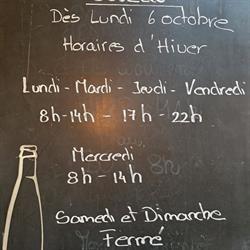 Dès Lundi 6 octobre
Horaires d'Hiver
Lundi - Mardi - Jeudi - Vendredi
8h-14h - 17h - 22h
Mercredi
8h - 14h
Samedi et Dimanche
Fermé